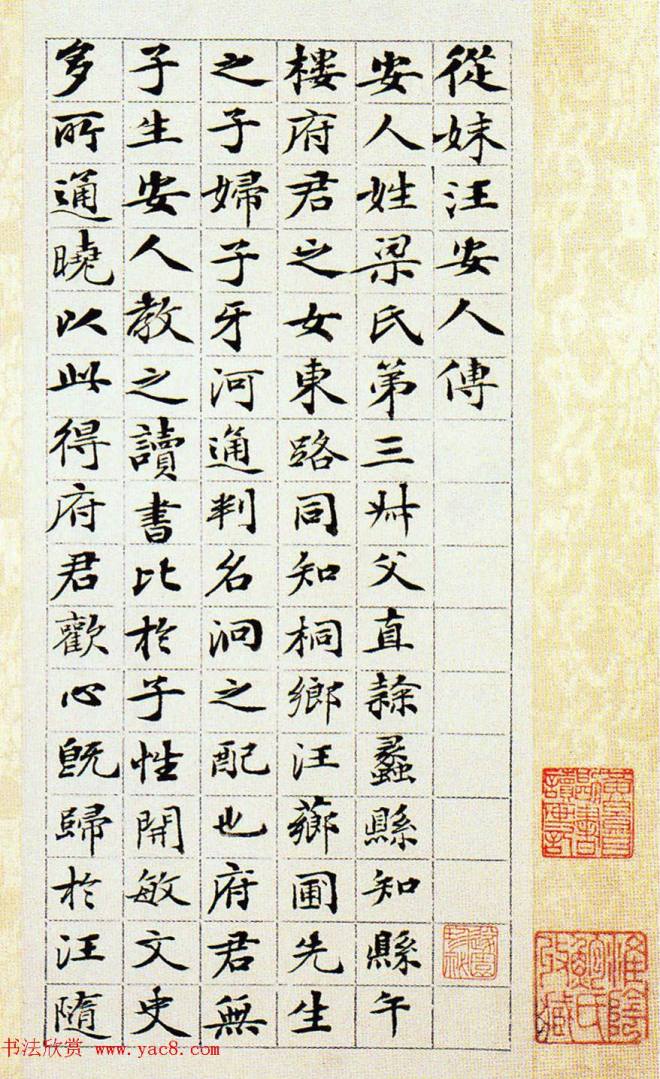 從妹汪安人傳
安人姓梁氏第三艸父直隸蠡縣知縣午
樓府君之女東路同知桐鄉汪薌圃先生
之子婦子牙河通判名泂之配也府君無
子生安人教之讀書比於子性開敏文史
多所通曉以此得府君歡心既歸於汪隨
书法欣赏 www.yac8.com